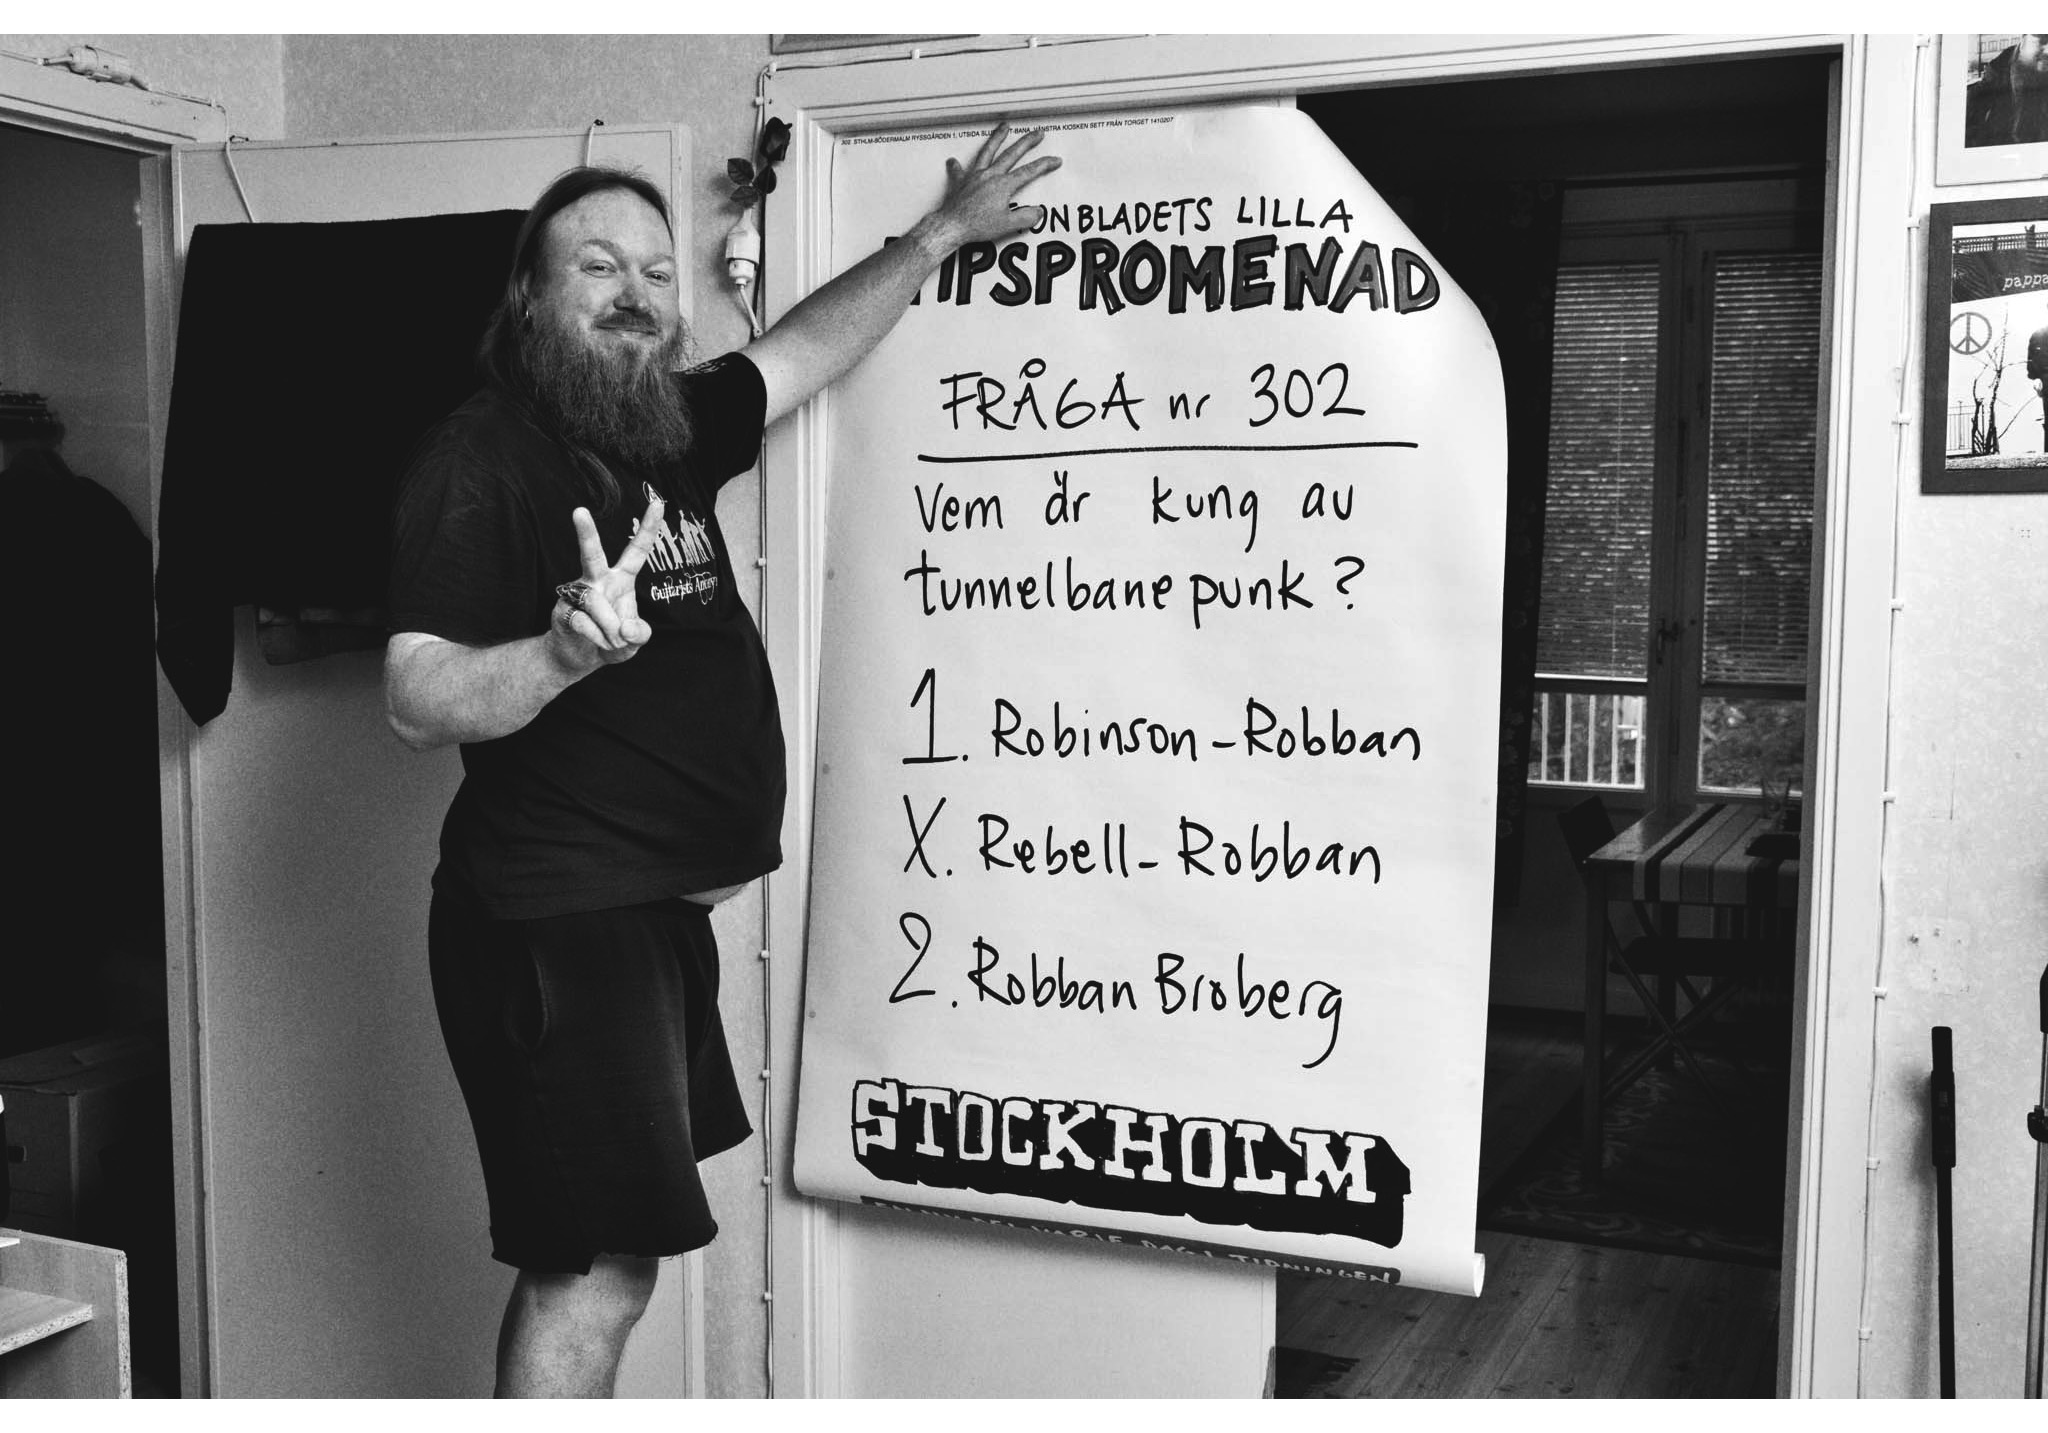 302. STHLM-SÖDERMALM RYSSGÅRDEN 1, UTSIDA T-BANA, VÄNSTRA KIOSKEN SETT FRÅN TORGET 1410207
ONBLADETS LILLA
TIPSPROMENAD
FRÅGA nr 302
Vem är kung av
tunnelbanepunk?
1. Robinson-Robban
X. Rebell-Robban
2. Robban Broberg
STOCKHOLM
DAG I TIDNINGEN
Guitarists
pappa